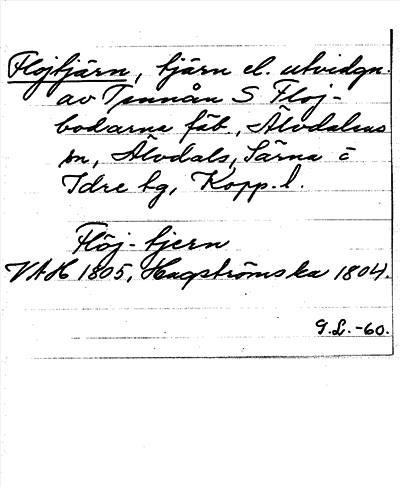 Flöjtjärn, tjärn el. utvidgn.
av Tennån S Flöj-
bodarna fäb, Älvdalens
sn, Älvdals, Särna o
Idre tg, Kopp. l.
Flöj-tjern
VAH 1805, Hagströmska 1804.
G.L.-60.